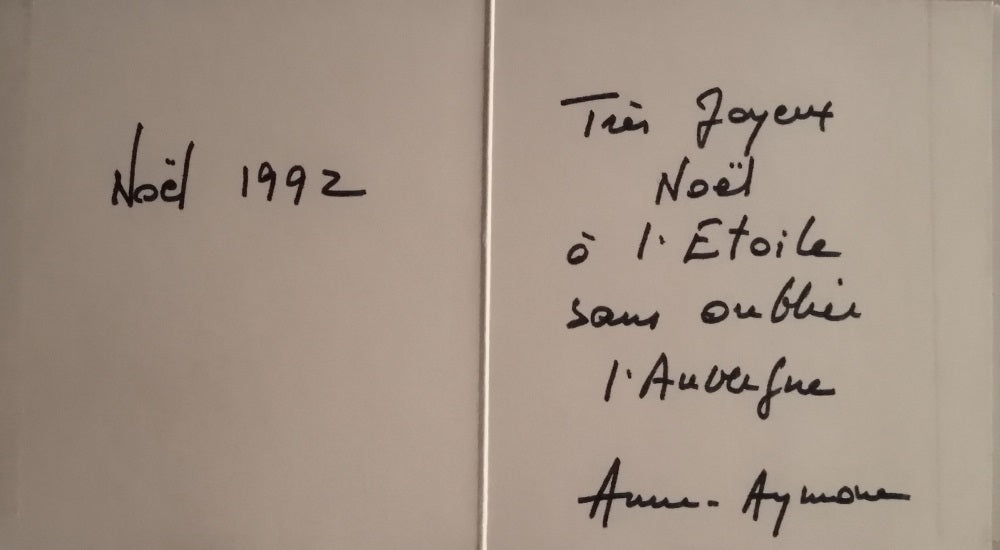 Noël 1992
Très Joyeux
Noël
à l'Etoile
sans oublier
l'Auvergne
Anne-Aymone